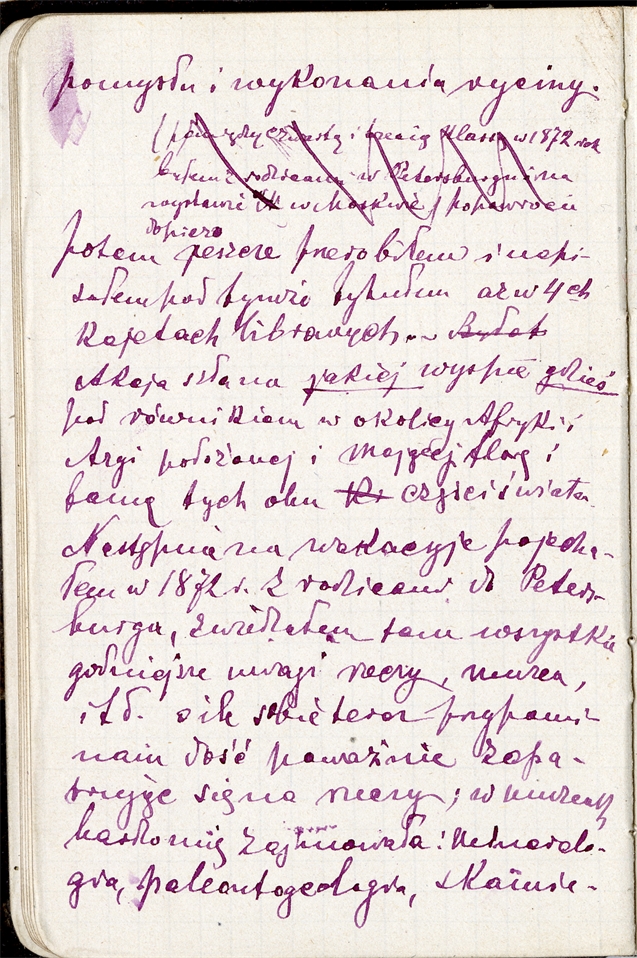 pomysłu i wykonania ryciny.
(pomiędzy czwartą i trecią klasą w 1872 rok
byłem z rodzicami w Petersburgu i na
wystawie w Moskwie) popowrocie
dopiero
potem jeszcze przerobiłem i napi-
sałem pod tymże tytułem aż w 4ch
kajetach librowych
Akcja szła na jakiej wyspie gdzieś
pod równikiem w okolicy Afryki i
Azyi położonej i mającej florę i
faunę tych obu części świata
Następnie na wakacyje pojecha-
łem w 1872 r. z rodzicami do Peters-
burga, zwiedzałem tam wszystkie
godniejsze uwagi rzeczy, muzea,
itd. o ile sobie teraz przypomi-
nam dość poważnie zapa-
trując się na rzeczy; w muzeach
bardzo mię zajmowała: Mineralo-
gia, paleontogeologia, skamie-